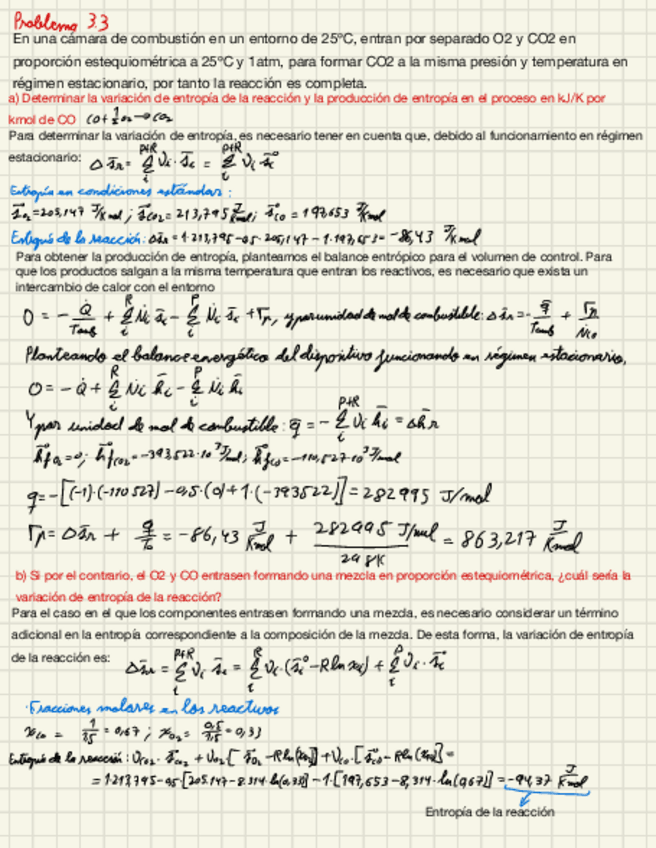 Problema 3.3
En una cámara de combustión en un entorno de 25ºC, entran por separado O2 y CO2 en
proporción estequiométrica a 25ºC y 1atm, para formar CO2 a la misma presión y temperatura en
régimen estacionario, por tanto la reacción es completa.
a) Determinar la variación de entropía de la reacción y la producción de entropía en el proceso en kJ/K por
kmol de CO CO + 1/2 O2 → CO2
Para determinar la variación de entropía, es necesario tener en cuenta que, debido al funcionamiento en régimen
estacionario: Δs̄r = Σ_i^{P+R} νi · s̄i = Σ_i^{P+R} νi s̄i°
Entropía en condiciones estándar:
s̄°O2 = 205,147 J/Kmol ; s̄°CO2 = 213,795 J/Kmol ; s̄°CO = 197,653 J/Kmol
Entropía de la reacción: Δs̄r = 1·213,795 - 0,5·205,147 - 1·197,653 = -86,43 J/Kmol
Para obtener la producción de entropía, planteamos el balance entrópico para el volumen de control. Para
que los productos salgan a la misma temperatura que entran los reactivos, es necesario que exista un
intercambio de calor con el entorno
0 = - Q̇/Tamb + Σ_i^R Ṅi s̄i - Σ_i^P Ṅi s̄i + Γp, y por unidad de mol de combustible: Δs̄r = - q̄/Tamb + Γp/ṄCO
Planteando el balance energético del dispositivo funcionando en régimen estacionario,
0 = - Q̇ + Σ_i^R Ṅi h̄i - Σ_i^P Ṅi h̄i
Y por unidad de mol de combustible: q̄ = - Σ_i^{P+R} νi h̄i = Δh̄r
h̄°fO2 = 0; h̄°fCO2 = -393,522·10³ J/mol; h̄°fCO = -110,527·10³ J/mol
q = -[(-1)·(-110527) - 0,5·(0) + 1·(-393522)] = 282995 J/mol
Γp = Δs̄r + q/T0 = -86,43 J/Kmol + 282995 J/mol / 298K = 863,217 J/Kmol
b) Si por el contrario, el O2 y CO entrasen formando una mezcla en proporción estequiométrica, ¿cuál sería la
variación de entropía de la reacción?
Para el caso en el que los componentes entrasen formando una mezcla, es necesario considerar un término
adicional en la entropía correspondiente a la composición de la mezcla. De esta forma, la variación de entropía
de la reacción es: Δs̄r = Σ_i^{P+R} νi s̄i = Σ_i^R νi·(s̄i° - R ln xi) + Σ_i^P νi · s̄i°
·Fracciones molares en los reactivos
xCO = 1/1,5 = 0,67 ; xO2 = 0,5/1,5 = 0,33
Entropía de la reacción: νCO2 · s̄°CO2 + νO2 [s̄°O2 - R ln(xO2)] + νCO · [s̄°CO - R ln(xCO)] =
= 1·213,795 - 0,5·[205,147 - 8,314·ln(0,33)] - 1·[197,653 - 8,314·ln(0,67)] = -94,37 J/Kmol
Entropía de la reacción